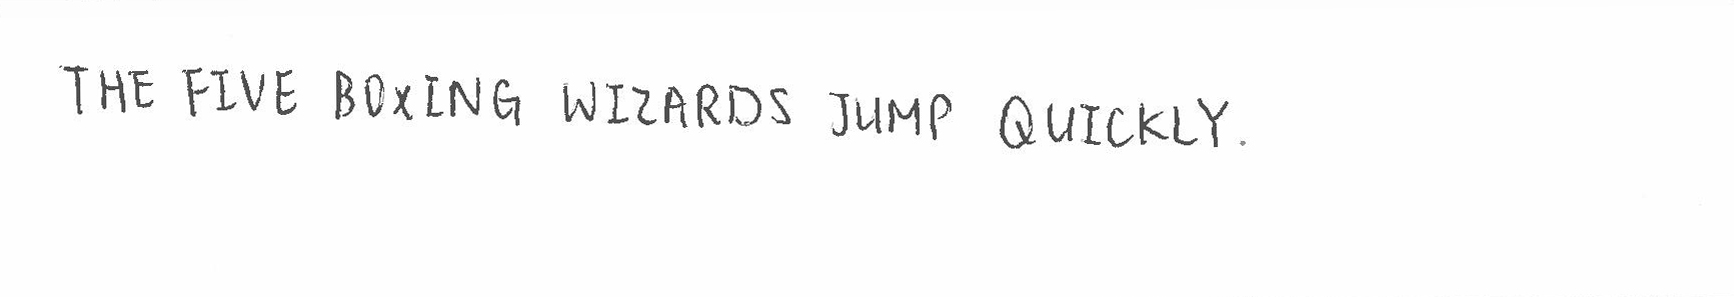 THE FIVE BOXING WIZARDS JUMP QUICKLY.